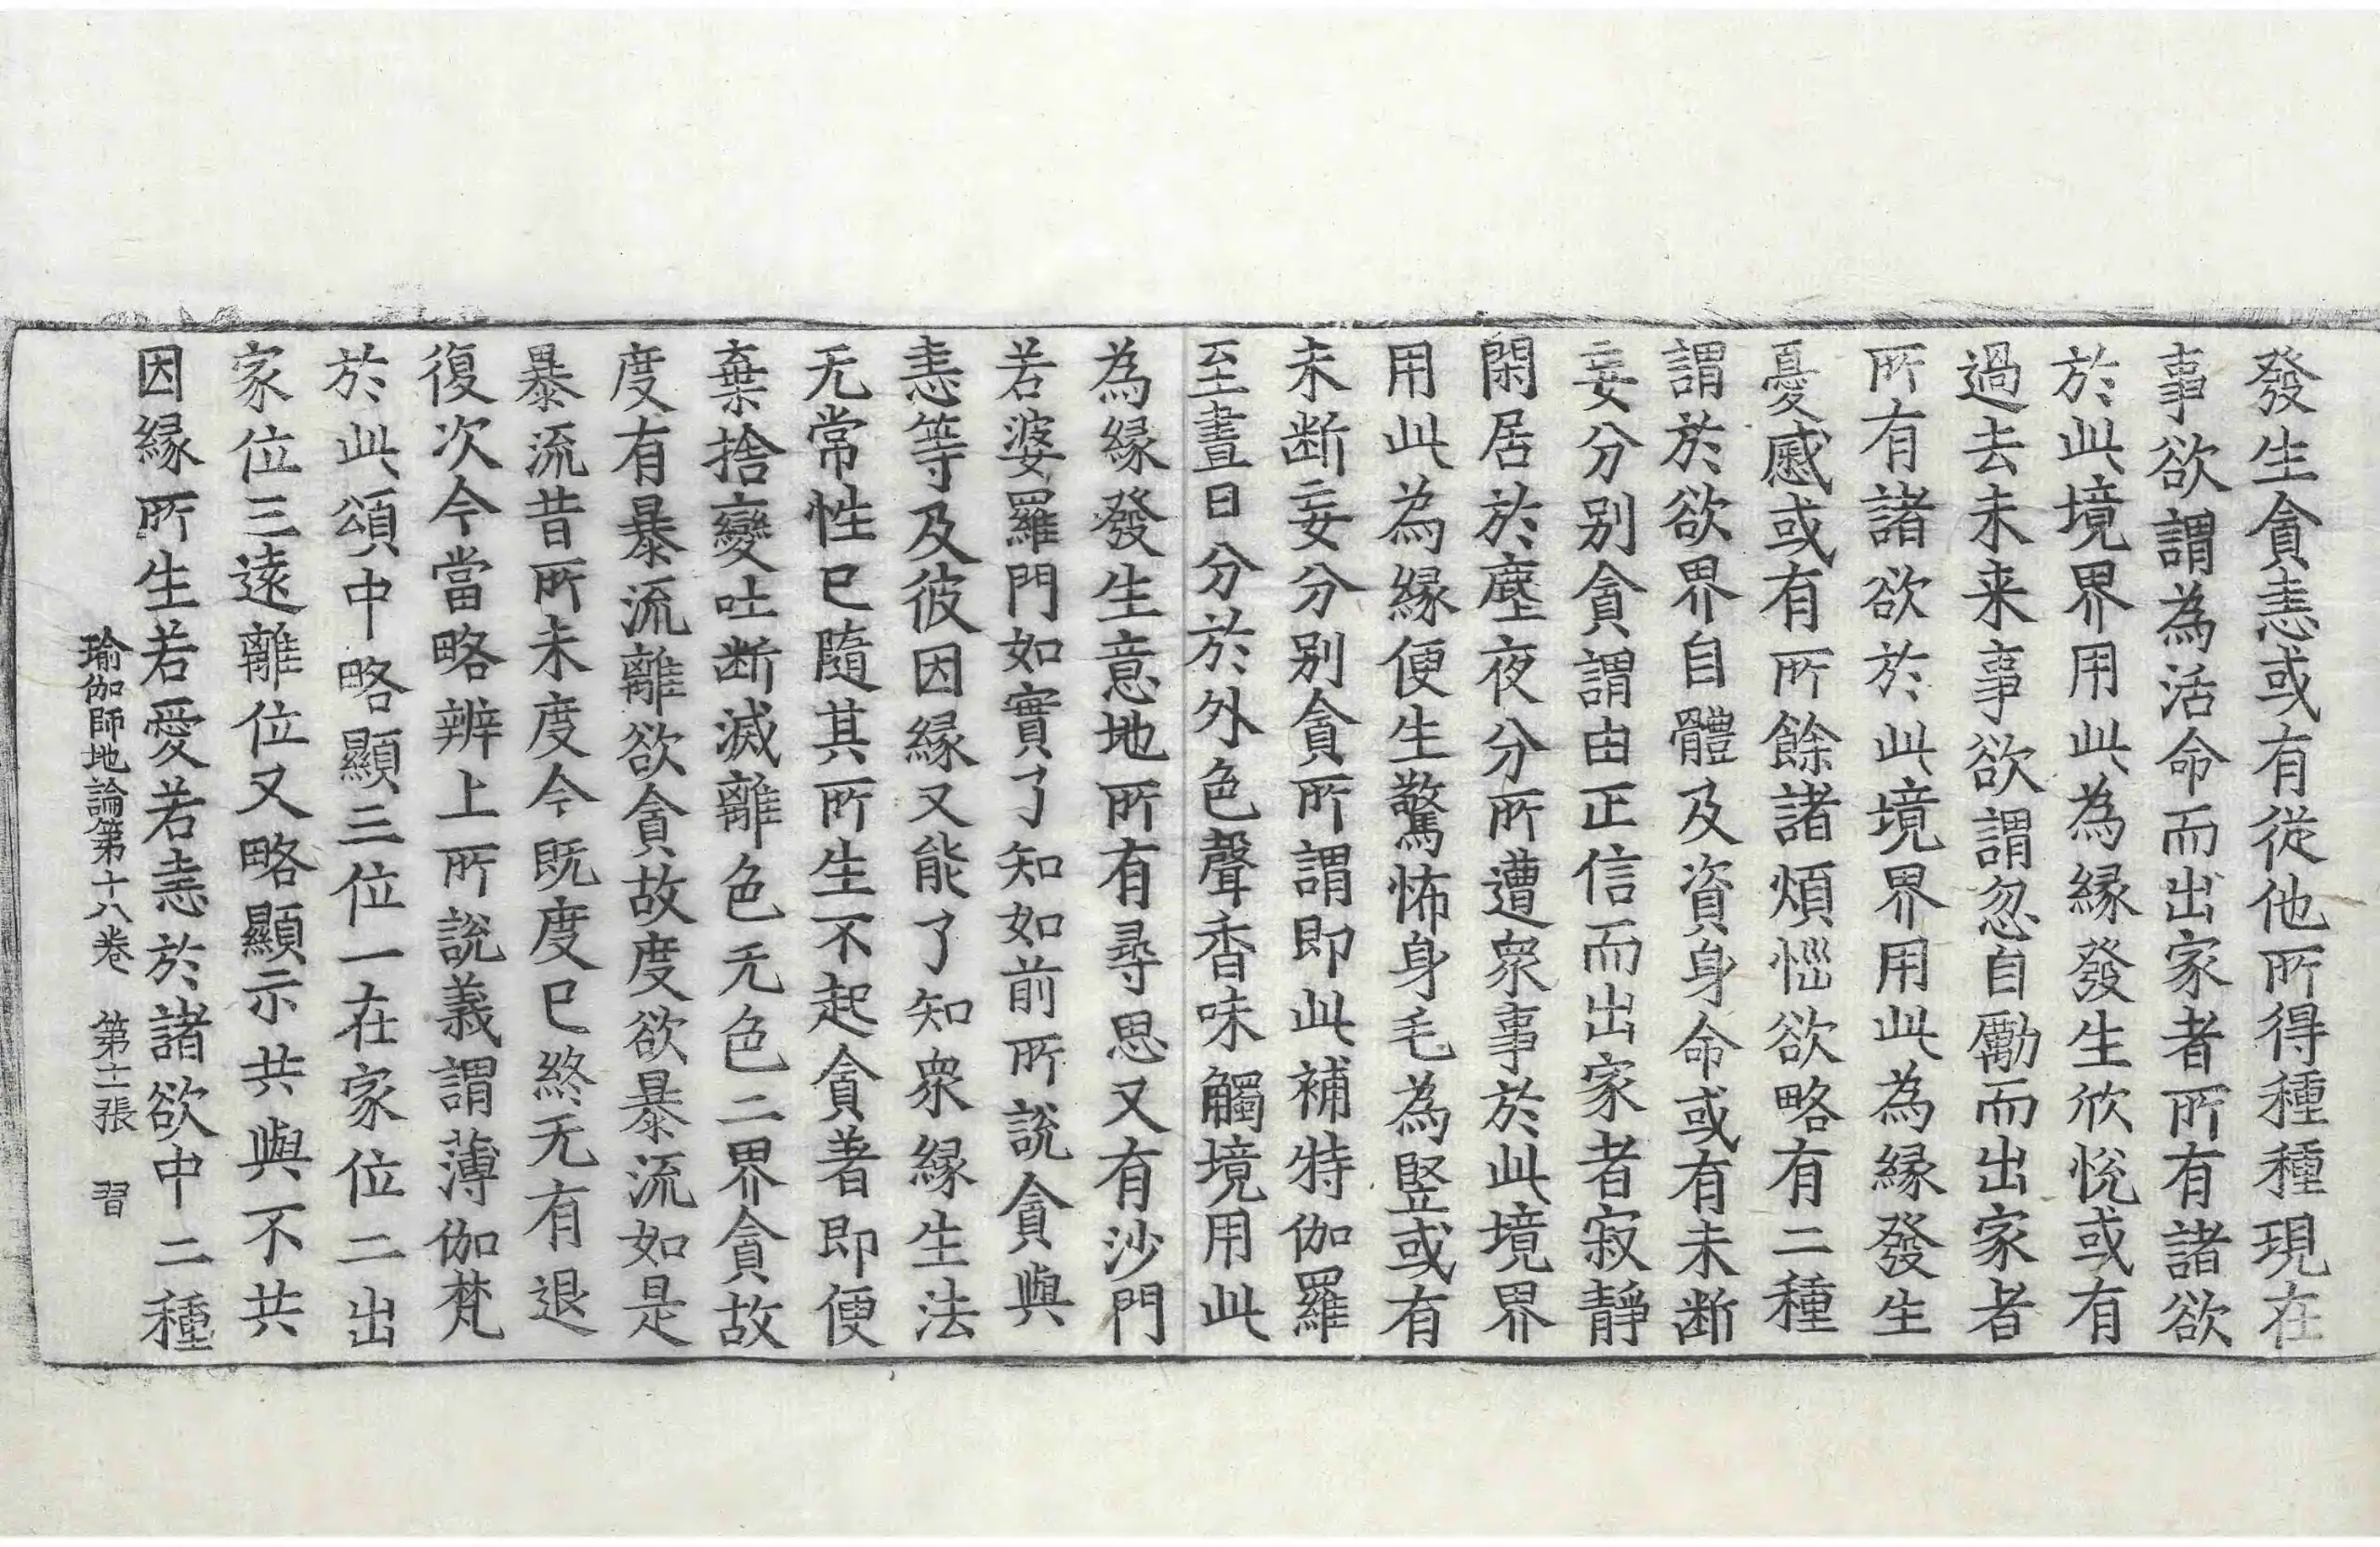 發生貪恚或有從他所得種種現在
事欲謂為活命而出家者所有諸欲
於此境界用此為縁發生欣悅或有
過去未来事欲謂忽自勵而出家者
所有諸欲於此境界用此為縁發生
憂慼或有所餘諸煩惱欲略有二種
謂於欲界自體及資身命或有未斷
妄分别貪謂由正信而出家者寂靜
閑居於塵夜分所遭衆事於此境界
用此為縁便生驚怖身毛為竪或有
未断妄分别貪所謂即此補特伽羅
至晝日分於外色聲香味觸境用此
為縁發生意地所有尋思又有沙門
若婆羅門如實了知如前所說貪與
恚等及彼因縁又能了知衆縁生法
无常性已隨其所生不起貪著即便
棄捨變吐断滅離色无色二界貪故
度有暴流離欲貪故度欲暴流如是
暴流昔所未度今既度已終无有退
復次今當略辨上所說義謂薄伽梵
於此頌中略顯三位一在家位二出
家位三遠離位又略顯示共與不共
因縁所生若愛若恚於諸欲中二種
瑜伽師地論第十八卷　第十二張　習